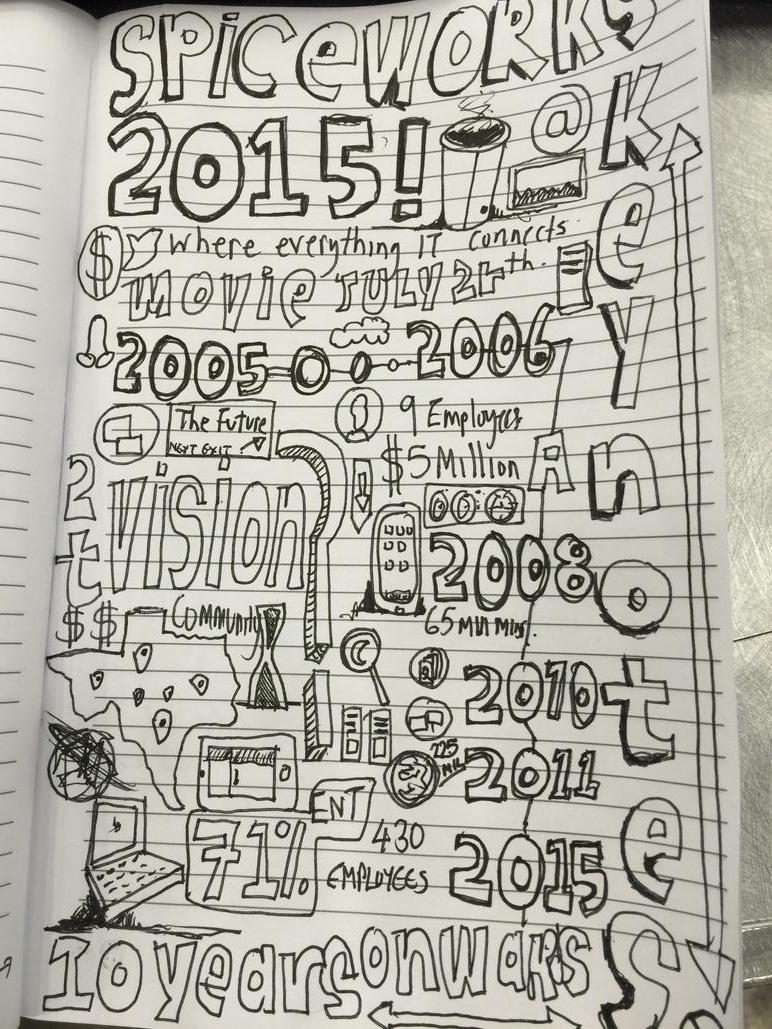 SPICEWORKS
2015! @
KeYnoteS
$ Where everything IT connects
movie JULY 24th.
2005 2006
The Future
NEXT EXIT
9 Employees
$5 Million
A
vision
2008
65 Mill
$$ COMMUNITY
2010
225
2011
ENT
71%
430
EMPLOYEES
2015
10 years onwaRS